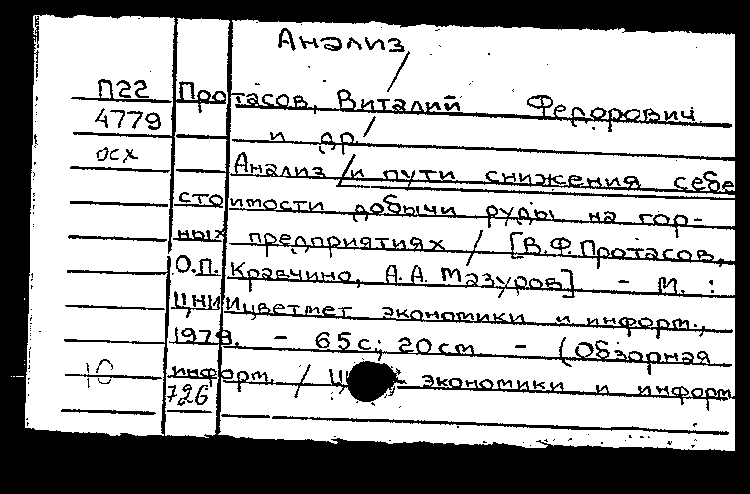 Анализ/
П22 Протасов, Виталий Федорович
4779 и др/
осх Анализ /и пути снижения себе
стоимости добычи руды на гор-
ных предприятиях / [В.Ф.Протасов,
О.П. Кравчино, А.А. Мазуров] - М. :
ЦНИИцветмет экономики и информ.,
1979. - 65с; 20см - (Обзорная
10 информ. / экономики и информ
726